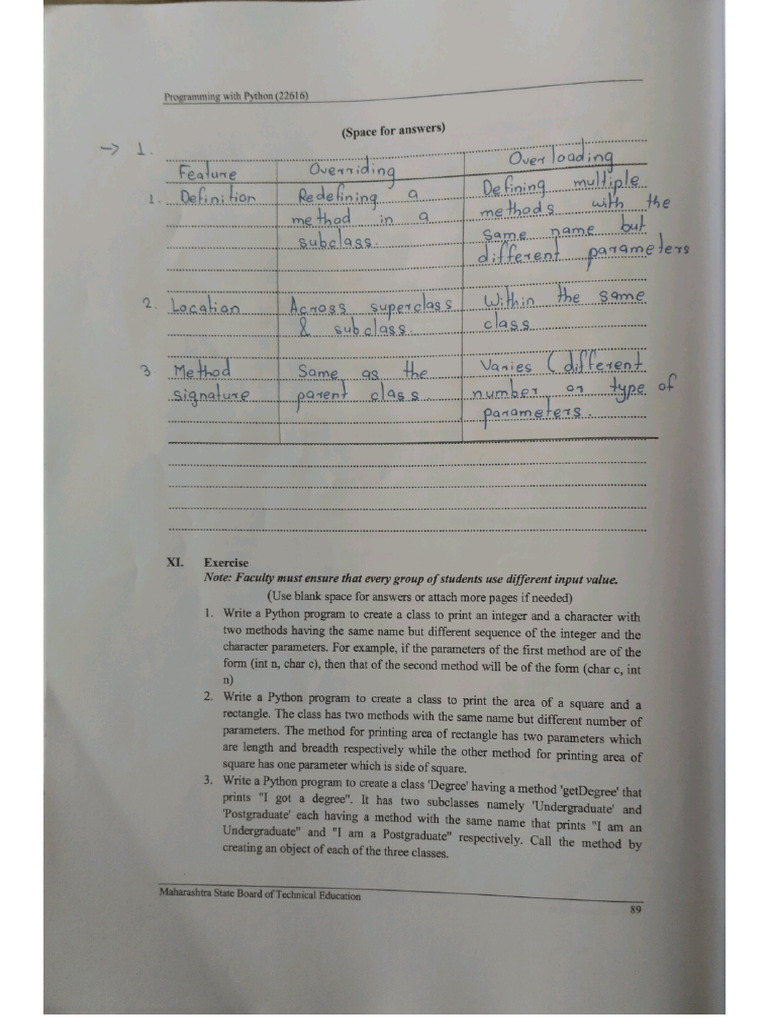 Programming with Python (22616)
(Space for answers)
→ 1.
Feature Overriding Overloading
1. Definition Redefining a Defining multiple
method in a methods with the
subclass. same name but
different parameters
2. Location Across superclass Within the same
& subclass. class
3 Method Same as the Varies (different
signature parent class. number or type of
parameters.
XI. Exercise
Note: Faculty must ensure that every group of students use different input value.
(Use blank space for answers or attach more pages if needed)
1. Write a Python program to create a class to print an integer and a character with
two methods having the same name but different sequence of the integer and the
character parameters. For example, if the parameters of the first method are of the
form (int n, char c), then that of the second method will be of the form (char c, int
n)
2. Write a Python program to create a class to print the area of a square and a
rectangle. The class has two methods with the same name but different number of
parameters. The method for printing area of rectangle has two parameters which
are length and breadth respectively while the other method for printing area of
square has one parameter which is side of square.
3. Write a Python program to create a class 'Degree' having a method 'getDegree' that
prints "I got a degree". It has two subclasses namely 'Undergraduate' and
'Postgraduate' each having a method with the same name that prints "I am an
Undergraduate" and "I am a Postgraduate" respectively. Call the method by
creating an object of each of the three classes.
Maharashtra State Board of Technical Education
89